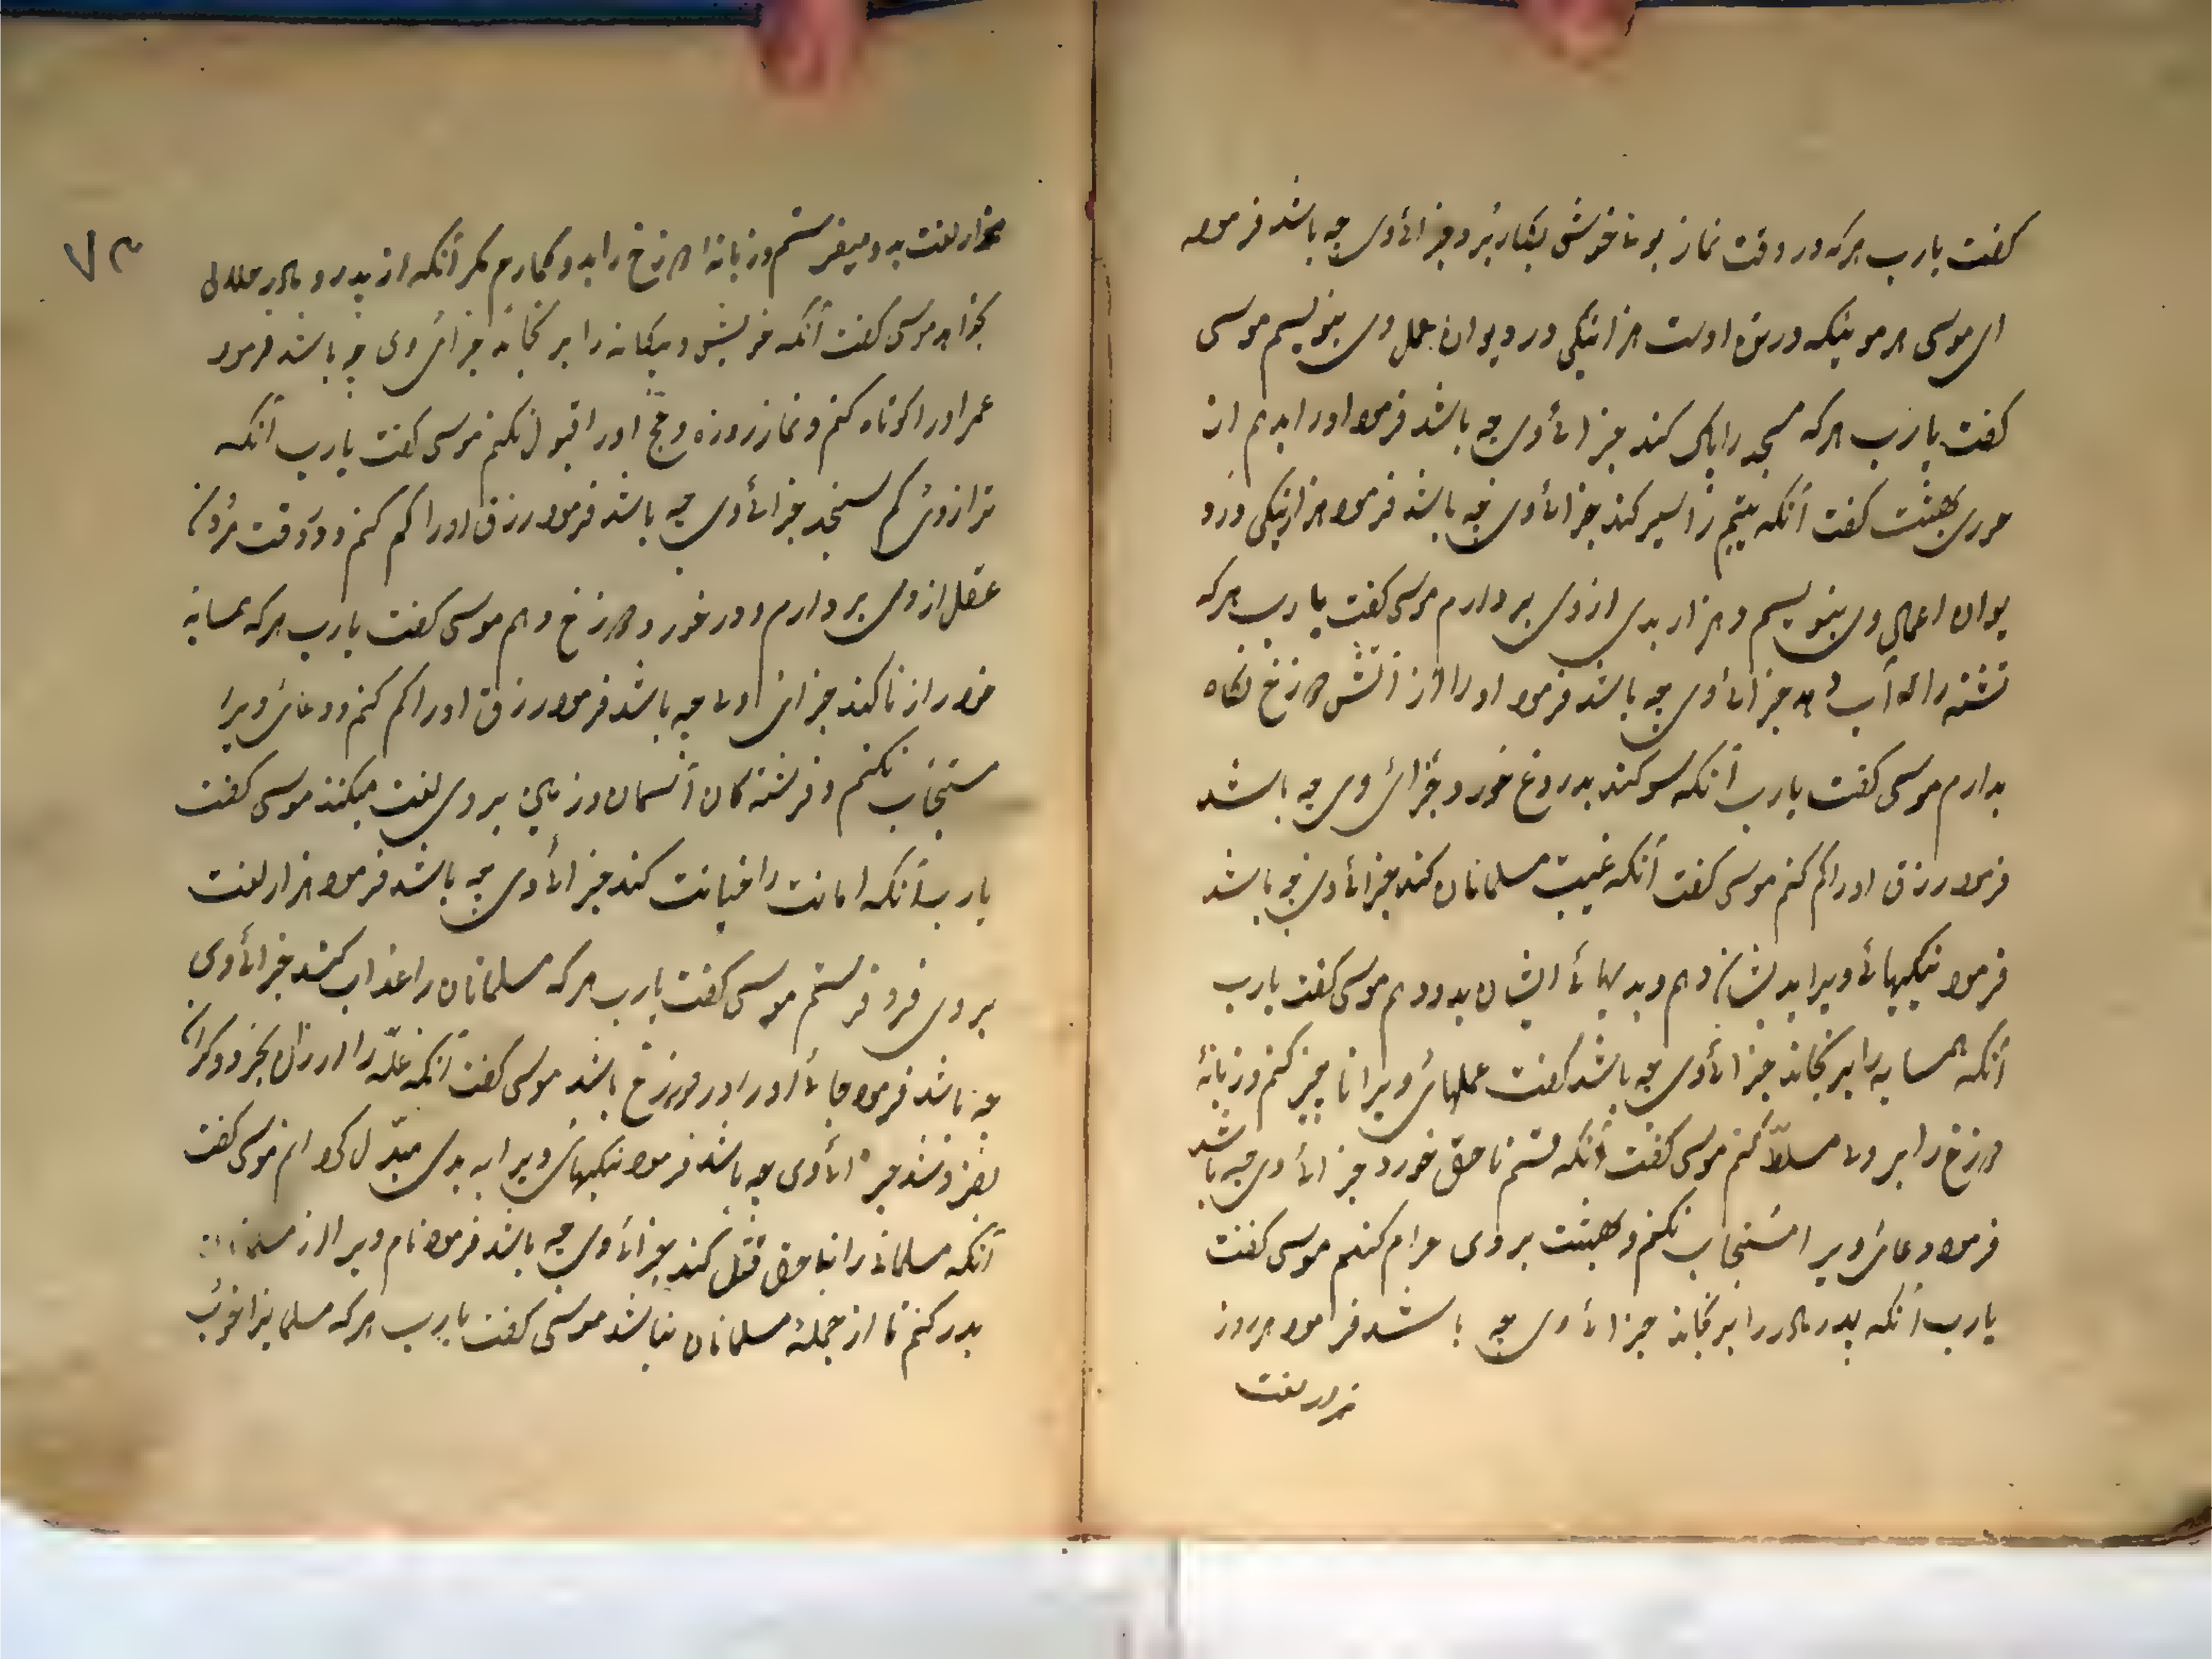 گفت یارب هرکه در وقت نماز بوی خوش بکار برد جزای وی چه باشد فرمود
ای موسی هر موئیکه در تن اوست هزار نیکی در دیوان عمل وی بنویسم موسی
گفت یارب هرکه مسجد را پاک کند جزای وی چه باشد فرمود او را بدهم از
حوری بهشت گفت آنکه یتیم را سیر کند جزای وی چه باشد فرمود هزار نیکی در د
یوان اعمال وی بنویسم و هزار بدی از وی بردارم موسی گفت یارب هرکه
تشنه را آب دهد جزای وی چه باشد فرمود او را از آتش دوزخ نگاه
بدارم موسی گفت یارب آنکه سوکند بدروغ خورد جزای وی چه باشد
فرمود رزق او را کم کنم موسی گفت آنکه غیبت مسلمانان کند جزای وی چه باشد
فرمود نیکیهای ویرا بدیشان دهم و بدیهای ایشان بدو دهم موسی گفت یارب
آنکه همسایه را برنجاند جزای وی چه باشد گفت عملهای ویرا ناچیز کنم و زبانهٔ
دوزخ را بر وی مسلّط کنم موسی گفت آنکه قسم ناحق خورد جزای وی چه باشد
فرمود دعای ویرا مستجاب نکنم و بهشت بر وی حرام کنم موسی گفت
یارب آنکه پدر مادر را برنجاند جزای وی چه باشد فرمود هر روز
هزار لعنت
۷۳
هزار لعنت بدو میفرستم و زبانه دوزخ را بدو کمارم مکر آنکه از پدر و مادر حلالی
بخواهد موسی گفت آنکه خویش و بیکانه را برنجاند جزای وی چه باشد فرمود
عمر او را کوتاه کنم و نماز روزه و حج او را قبول نکنم موسی گفت یارب آنکه
ترازوی کم سنجد جزای وی چه باشد فرمود رزق او را کم کنم و در وقت مردن
عقل از وی بردارم و در خور دوزخ دهم موسی گفت یارب هرکه همسایه
خود را زنا کند جزای او چه باشد فرمود رزق او را کم کنم و دعای ویرا
مستجاب نکنم و فرشته کان آسمان و زمین بر وی لعنت میکنند موسی گفت
یارب آنکه امانت را خیانت کند جزای وی چه باشد فرمود هزار لعنت
بر وی فرو فرستم موسی گفت یارب هرکه مسلمانان را عذاب کند جزای وی
چه باشد فرمود جای او را در دوزخ باشد موسی گفت آنکه غلّه را ارزان بخرد و کران
بفروشد جزای وی چه باشد فرمود نیکیهای ویرا به بدی مبدّل کردانم موسی گفت
آنکه مسلمانی را بناحق قتل کند جزای وی چه باشد فرمود نام ویرا از مسلمانان
بدر کنم تا از جملهٔ مسلمانان نباشد موسی گفت یارب هرکه مسلمانیرا خوب